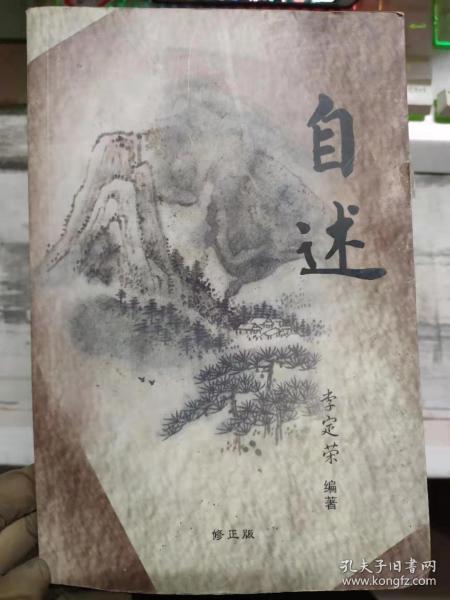 自述
李定荣 编著
修正版
孔夫子旧书网
www.kongfz.com